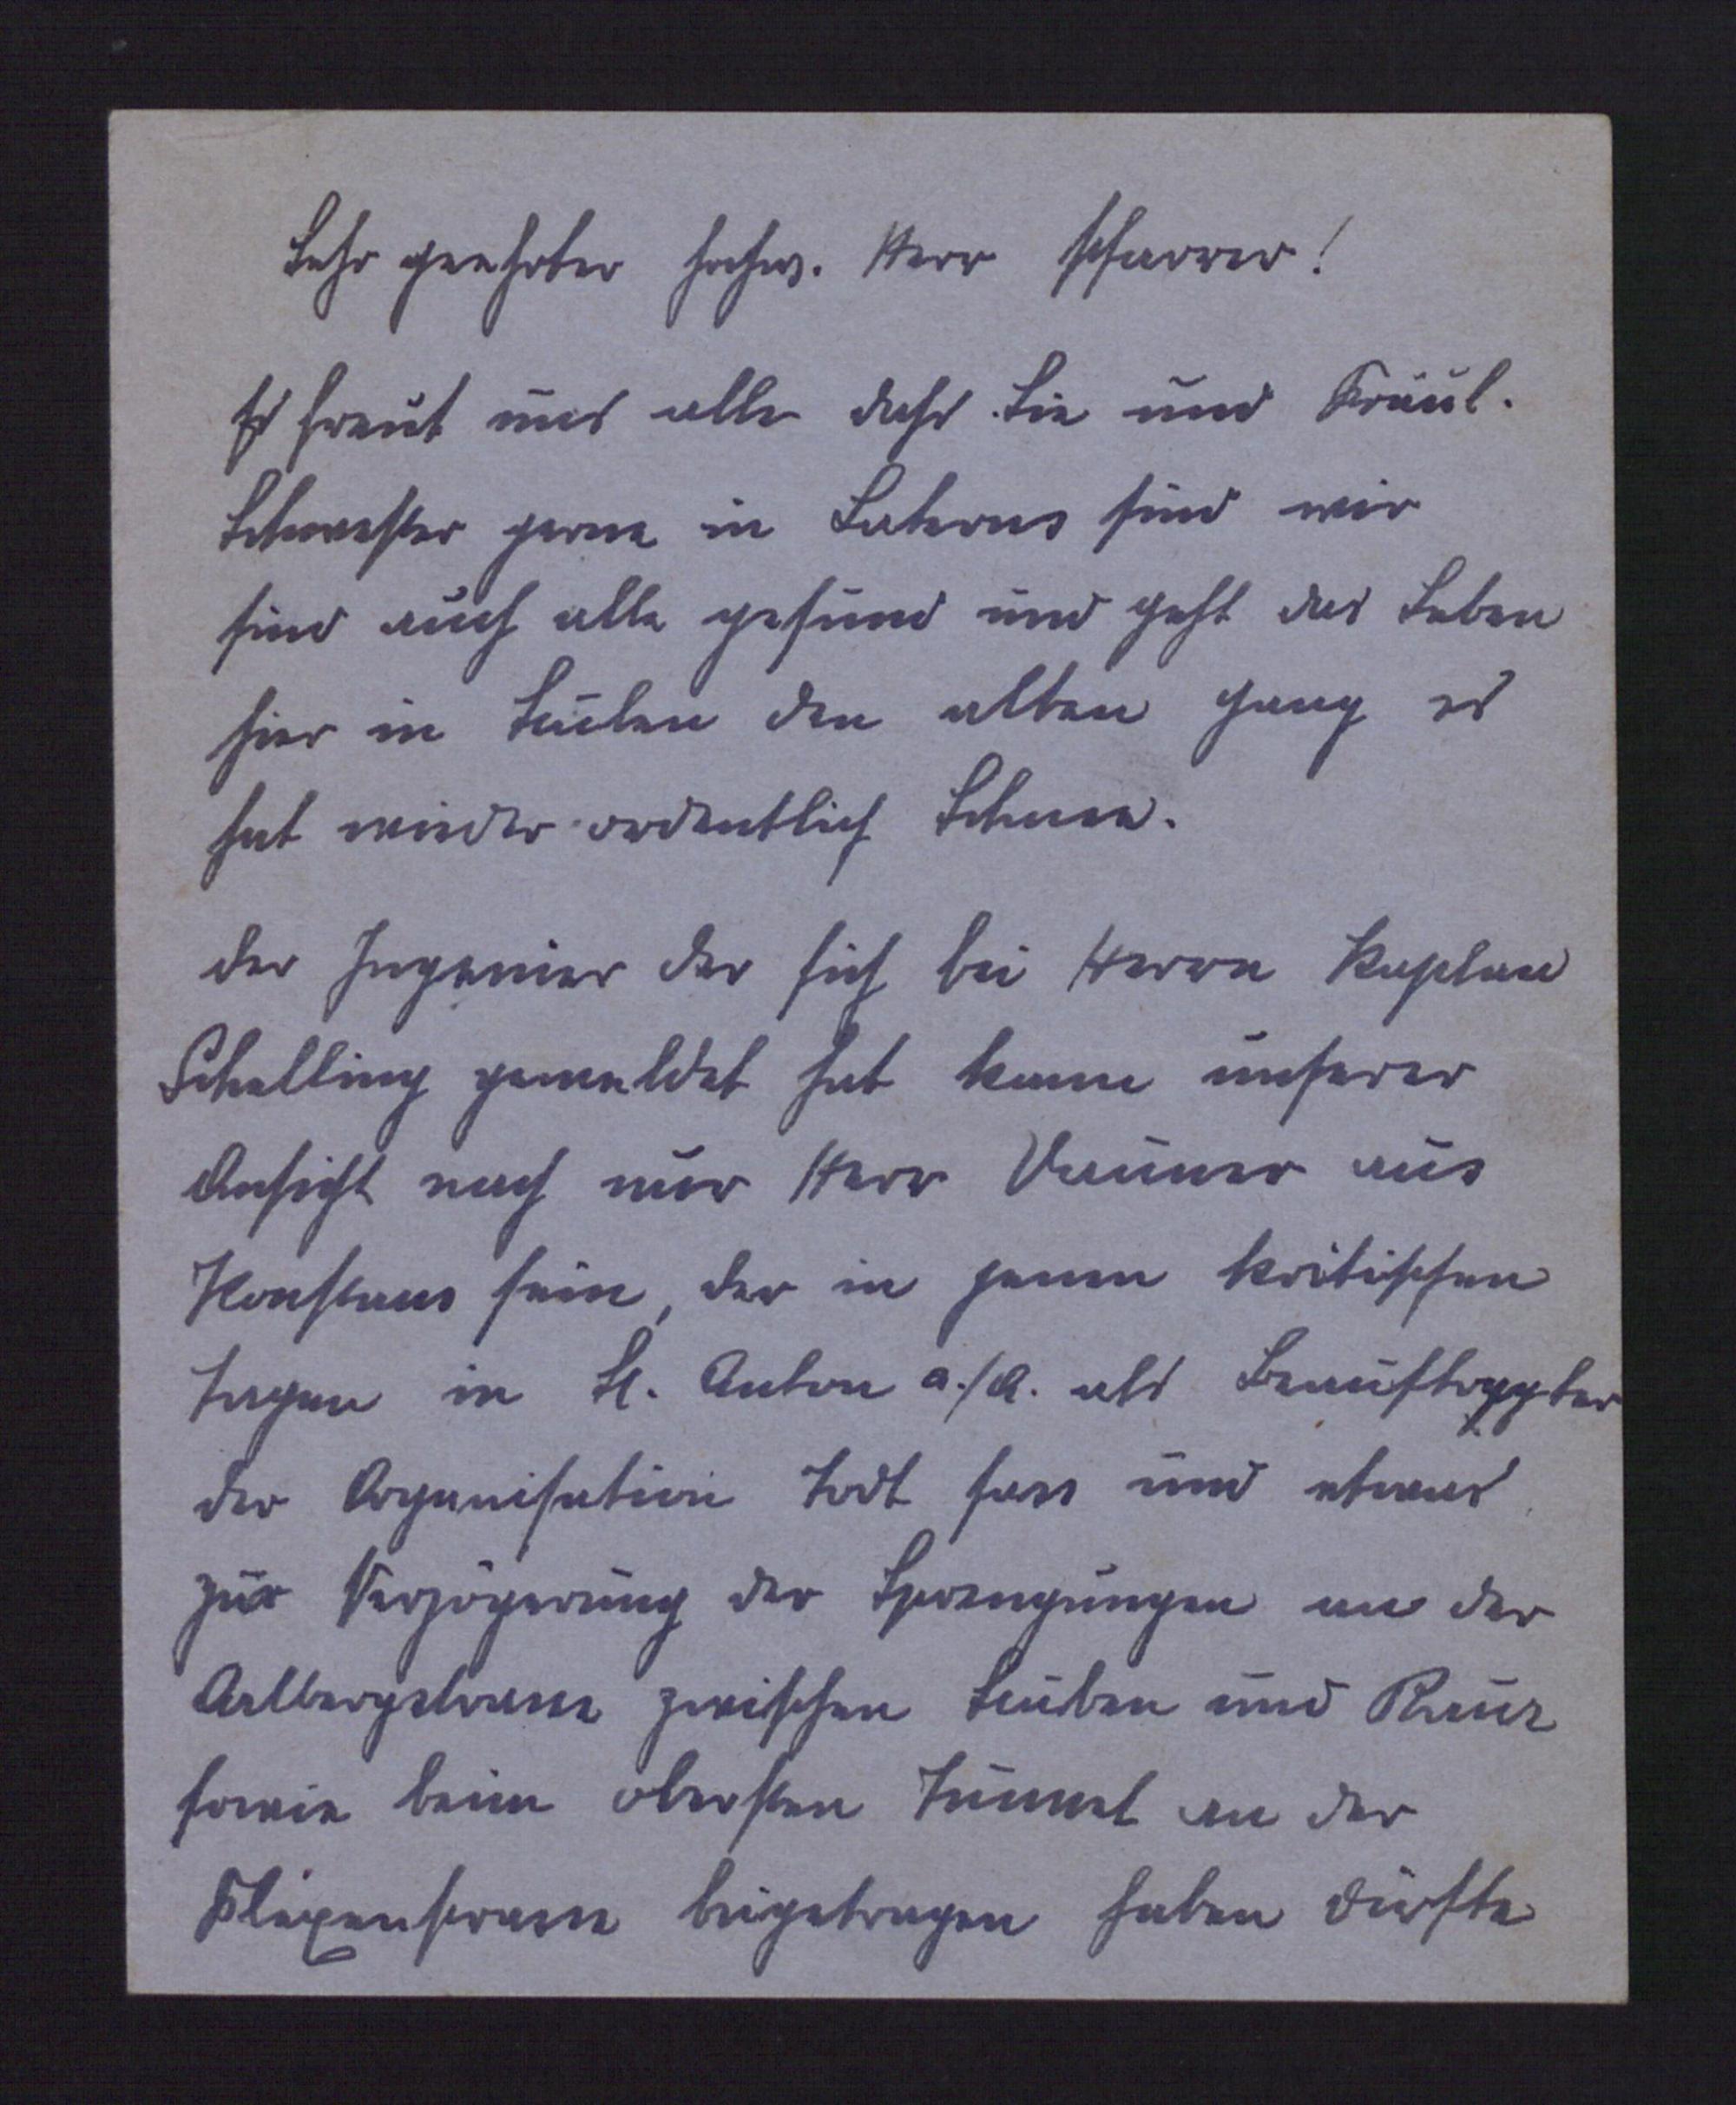 Sehr geehrter hochw. Herr Pfarrer!
Es freut uns alle dahs Sie und Fräul.
Schwester gerne in Laterns sind wir
sind auch alle gesund und geht das Leben
hier in Stuben den alten Gang es
hat wieder ordentlich Schnee.
der Ingenier der sich bei Herrn Kaplan
Schelling gemeldet hat kann unserer
Ansicht nach nur Herr Vauner aus
Konstans sein, der in jenen kritischen
Tagen in St. Anton a./A. als Beauftragter
der Organisation Todt sass und etwas
zur Verzögerung der Sprengungen an der
Arlbergstrasse zwischen Stuben und Rauz
sowie beim obersten Tunnel an der
Flexenstrasse beigetragen haben dürfte